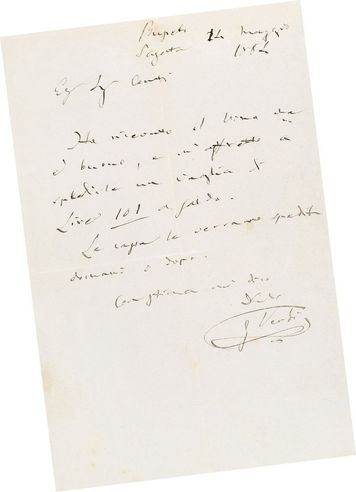 14 Maggio
S Agata
Eg Sig Conti
Ho ricevuto il vino
è buono, e m'affretto a
spedirle un vaglia di
Lire 101 a saldo.
Le verranno spedite
domani o dopo.
Con stima mi dico
G Verdi